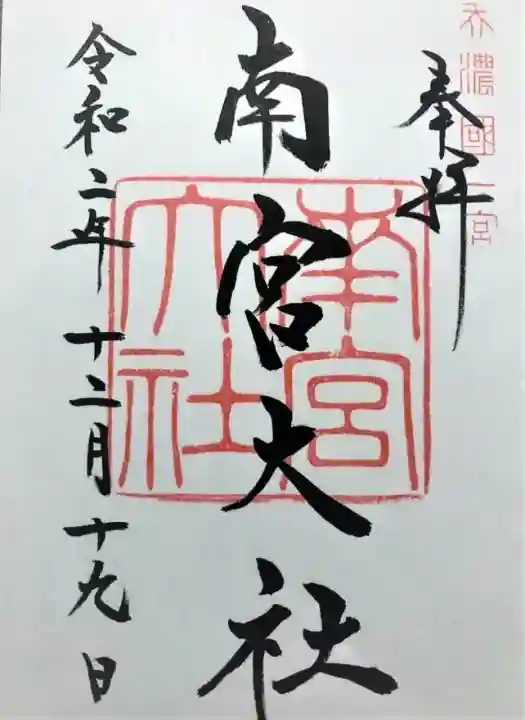 美濃國一宮
奉拝
南宮大社
南宮大社
令和二年十二月十九日